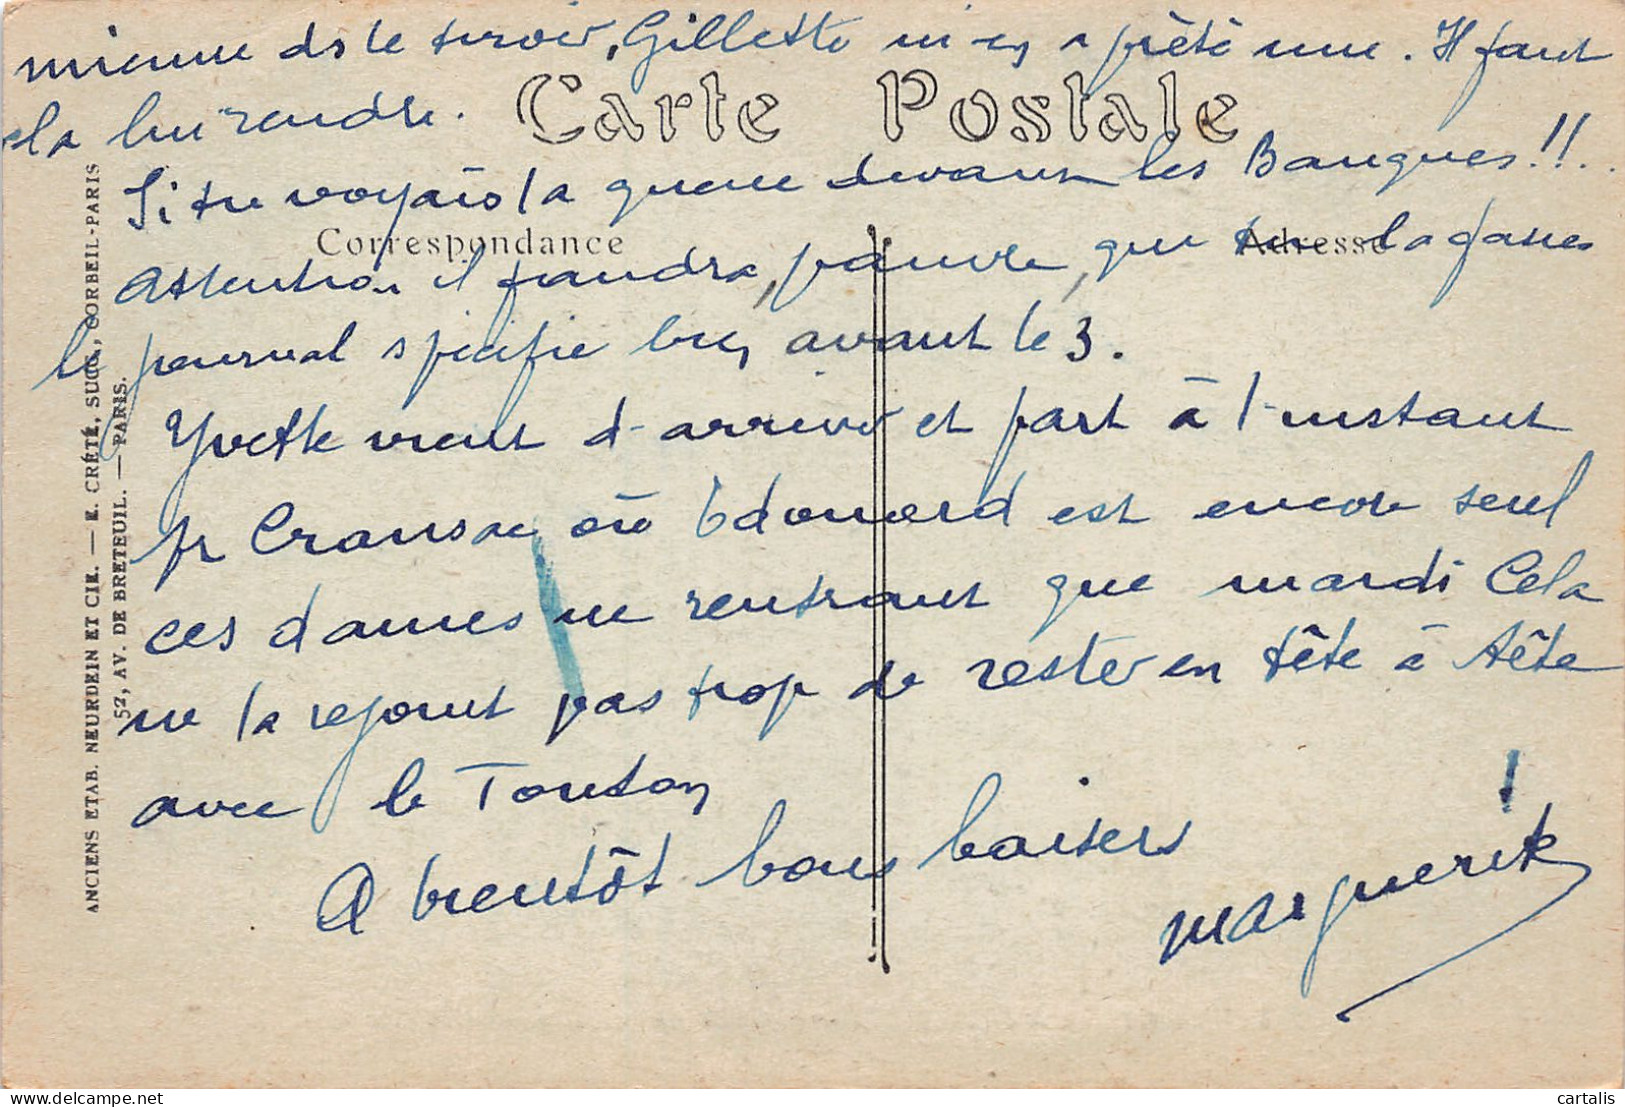 mienne ds le tiroir, Gillette m'en a prêté une. Il faut
la lui rendre.
Carte Postale
Si tu voyais la queue devant les Banques!!.
Correspondance
Adresse
Attention il faudra, pauvre, que tu la fasses
le journal spécifie bien avant le 3.
Yvette vient d'arriver et part à l'instant
pr Cransac où Edouard est encore seul
ces dames ne rentrant que mardi Cela
ne la réjouit pas trop de rester en tête à tête
avec le Tonton
A bientôt bons baisers
Marguerite
ANCIENS ETAB. NEURDEIN ET CIE. — E. CRÉTÉ, SUCR, CORBEIL-PARIS
52, AV. DE BRETEUIL. — PARIS.
cartalis